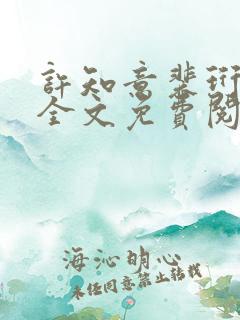 許知意裴珩
全文免費閱
海沁明心
未经同意禁止转载